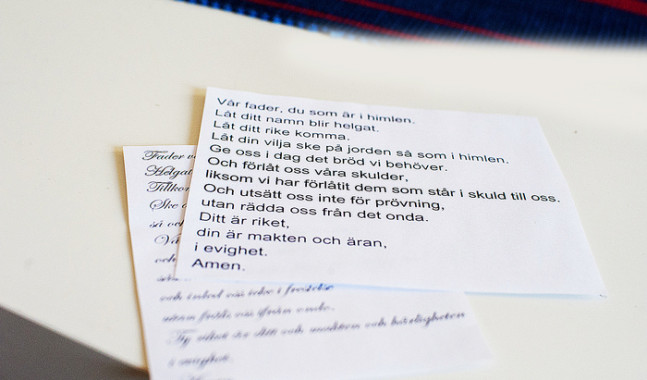 Vår fader, du som är i himlen.
Låt ditt namn blir helgat.
Låt ditt rike komma.
Låt din vilja ske på jorden så som i himlen.
Ge oss i dag det bröd vi behöver.
Och förlåt oss våra skulder,
liksom vi har förlåtit dem som står i skuld till oss.
Och utsätt oss inte för prövning,
utan rädda oss från det onda.
Ditt är riket,
din är makten och äran,
i evighet.
Amen.
Fader
Helgat
Tillkom
Ske
så och
Vå
och
och inled oss icke i frestelse
utan fräls oss ifrån ondo.
Ty riket är ditt och makten och härligheten
i evighet.